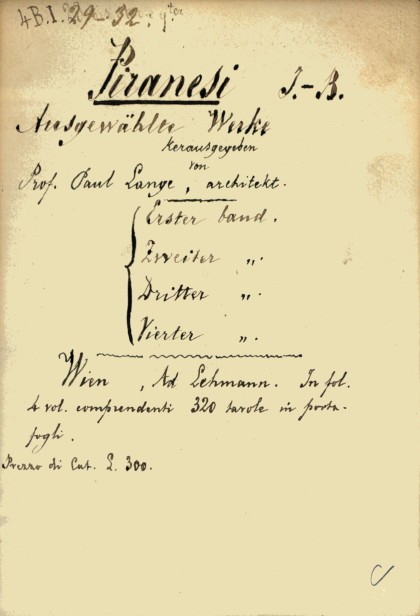 4 B. I. 29-32. 4ter
Piranesi J.-B.
Ausgewählte Werke
herausgegeben
von
Prof. Paul Lange, architekt.
Erster band.
Zweiter „.
Dritter „.
Vierter „.
Wien, Ad Lehmann. In fol.
4 vol. comprendenti 320 tavole in porta-
fogli.
Prezzo di Cat. L. 300.